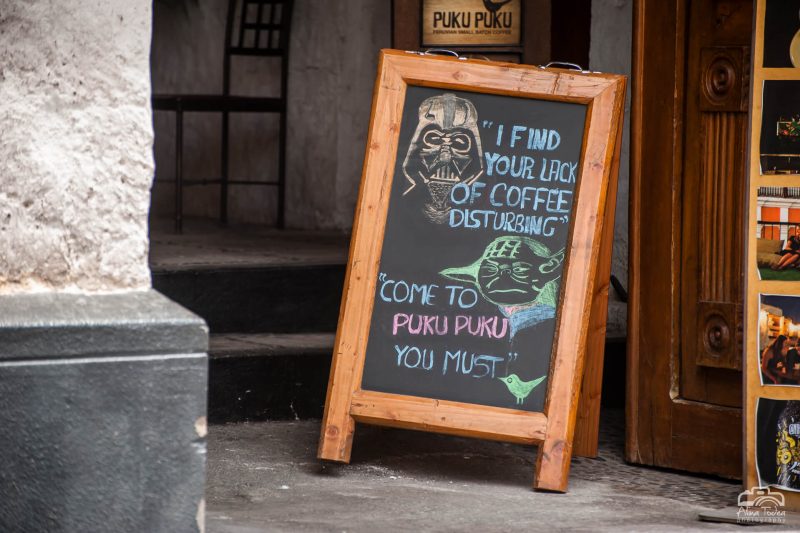 PUKU PUKU
PERUVIAN SMALL BATCH COFFEE
"I FIND
YOUR LACK
OF COFFEE
DISTURBING"
"COME TO
PUKU PUKU
YOU MUST"
Alina Tudea
photography